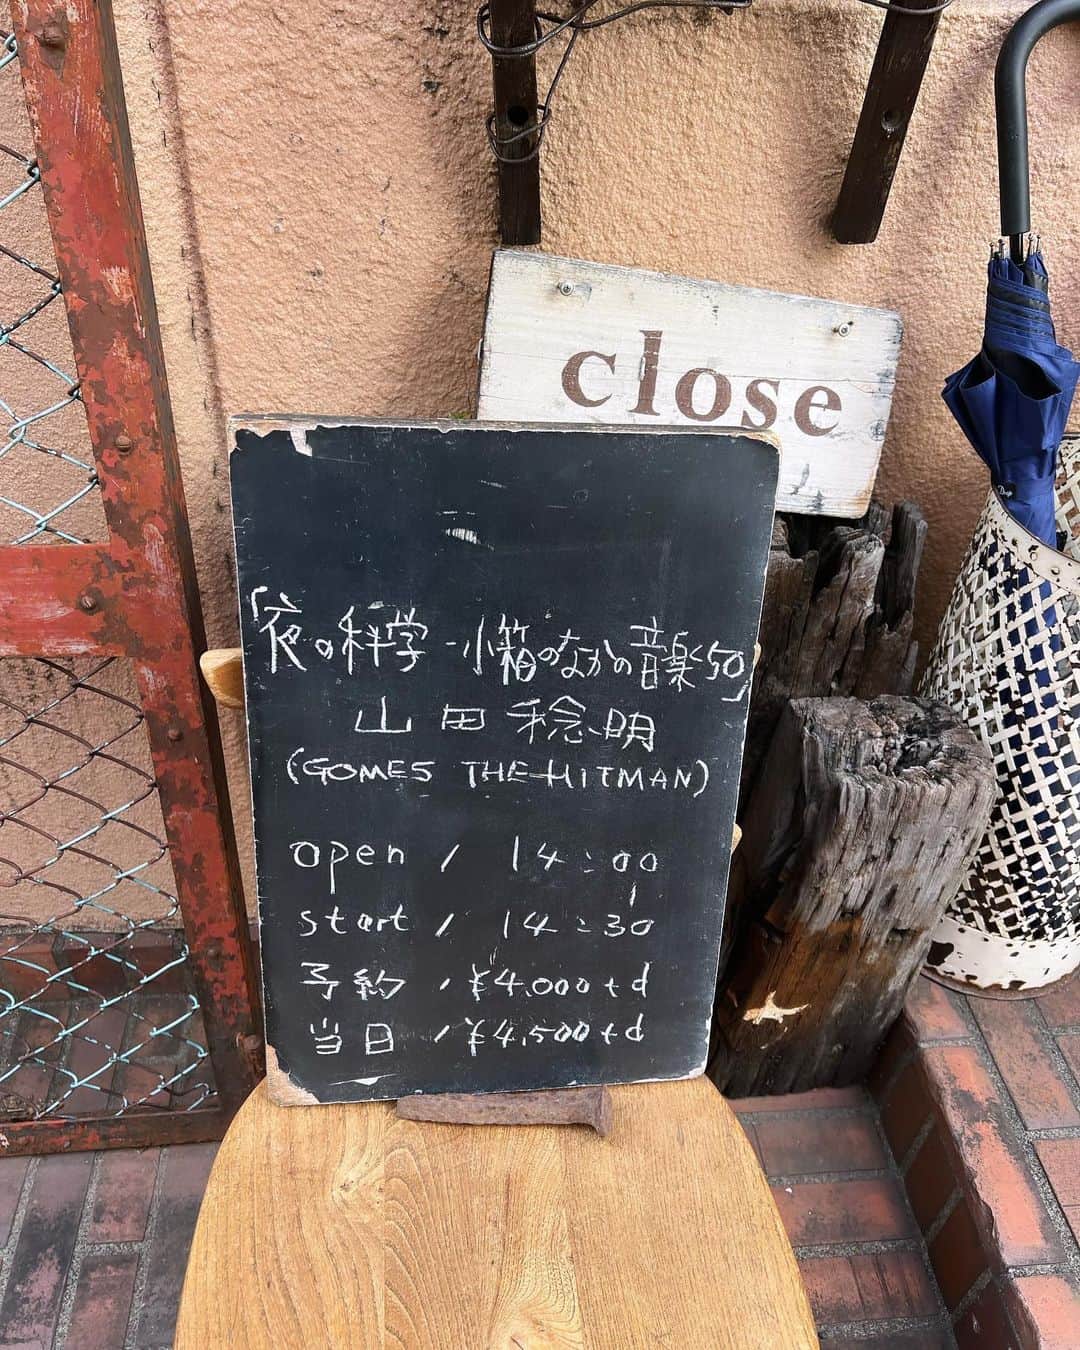 close
「夜の科学-小箱のなかの音楽50」
山田稔明
(GOMES THE HITMAN)
open / 14:00
start / 14:30
予約 / ¥4,000+d
当日 / ¥4,500+d